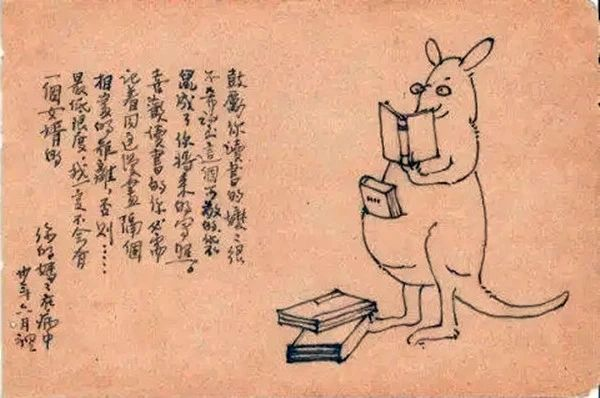 鼓勵你讀書的媽々很
不希望這個可敬的袋
鼠成了你將來的寫照。
喜歡讀書的你必需
記着同這漫畫隔個
相當的距離，否則……
最低限度，我一定不會有
一個女婿的
你的媽々在病中
卅年六月裡